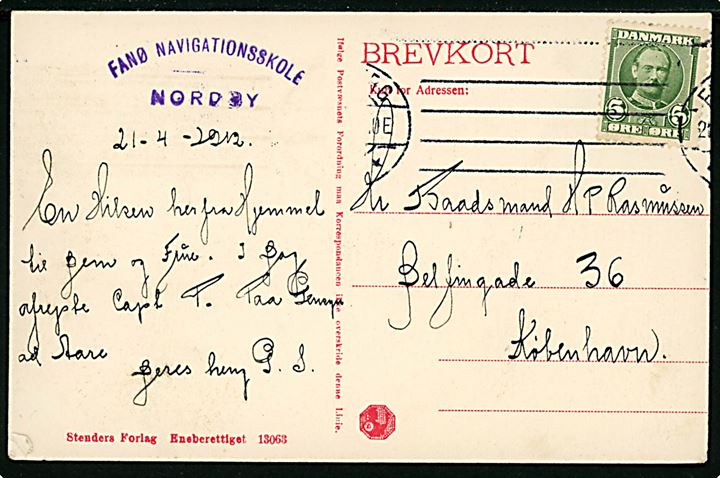 FANØ NAVIGATIONSSKOLE
NORDBY
21-4-1912.
En Hilsen herfra Hjemmet
til Dem og Frue. I Dag
afrejste Capt T.
ad Aare
Deres heng P. S.
Stenders Forlag Eneberettiget 13063
Ifølge Postvæsnets Forordning maa Korrespondancen ikke overskride denne Linie.
BREVKORT
Kun for Adressen:
DANMARK
5 5
ØRE ØRE
Hr Baadsmand H P Rasmussen
36
København.